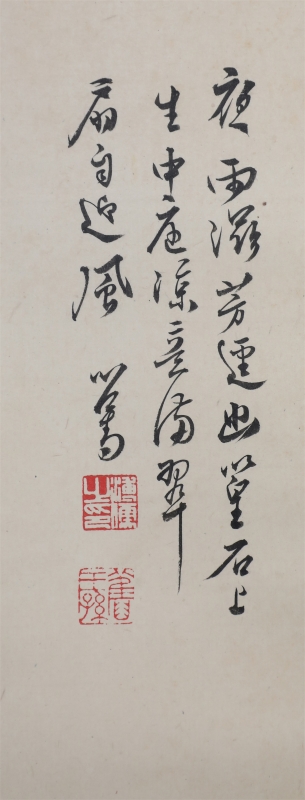 夜雨滋芳逕幽篁石上
生中庭涼意滿翠
扇自迎風 心畬
溥儒之印
舊王孫